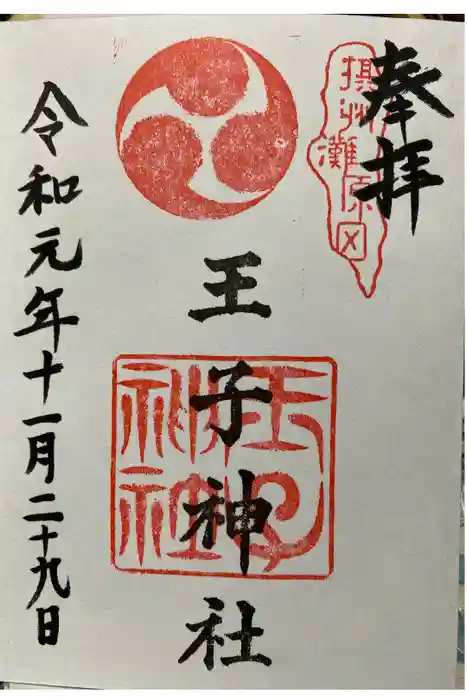 奉拝
摂州
灘原区
王子神社
王子神社
令和元年十一月二十九日